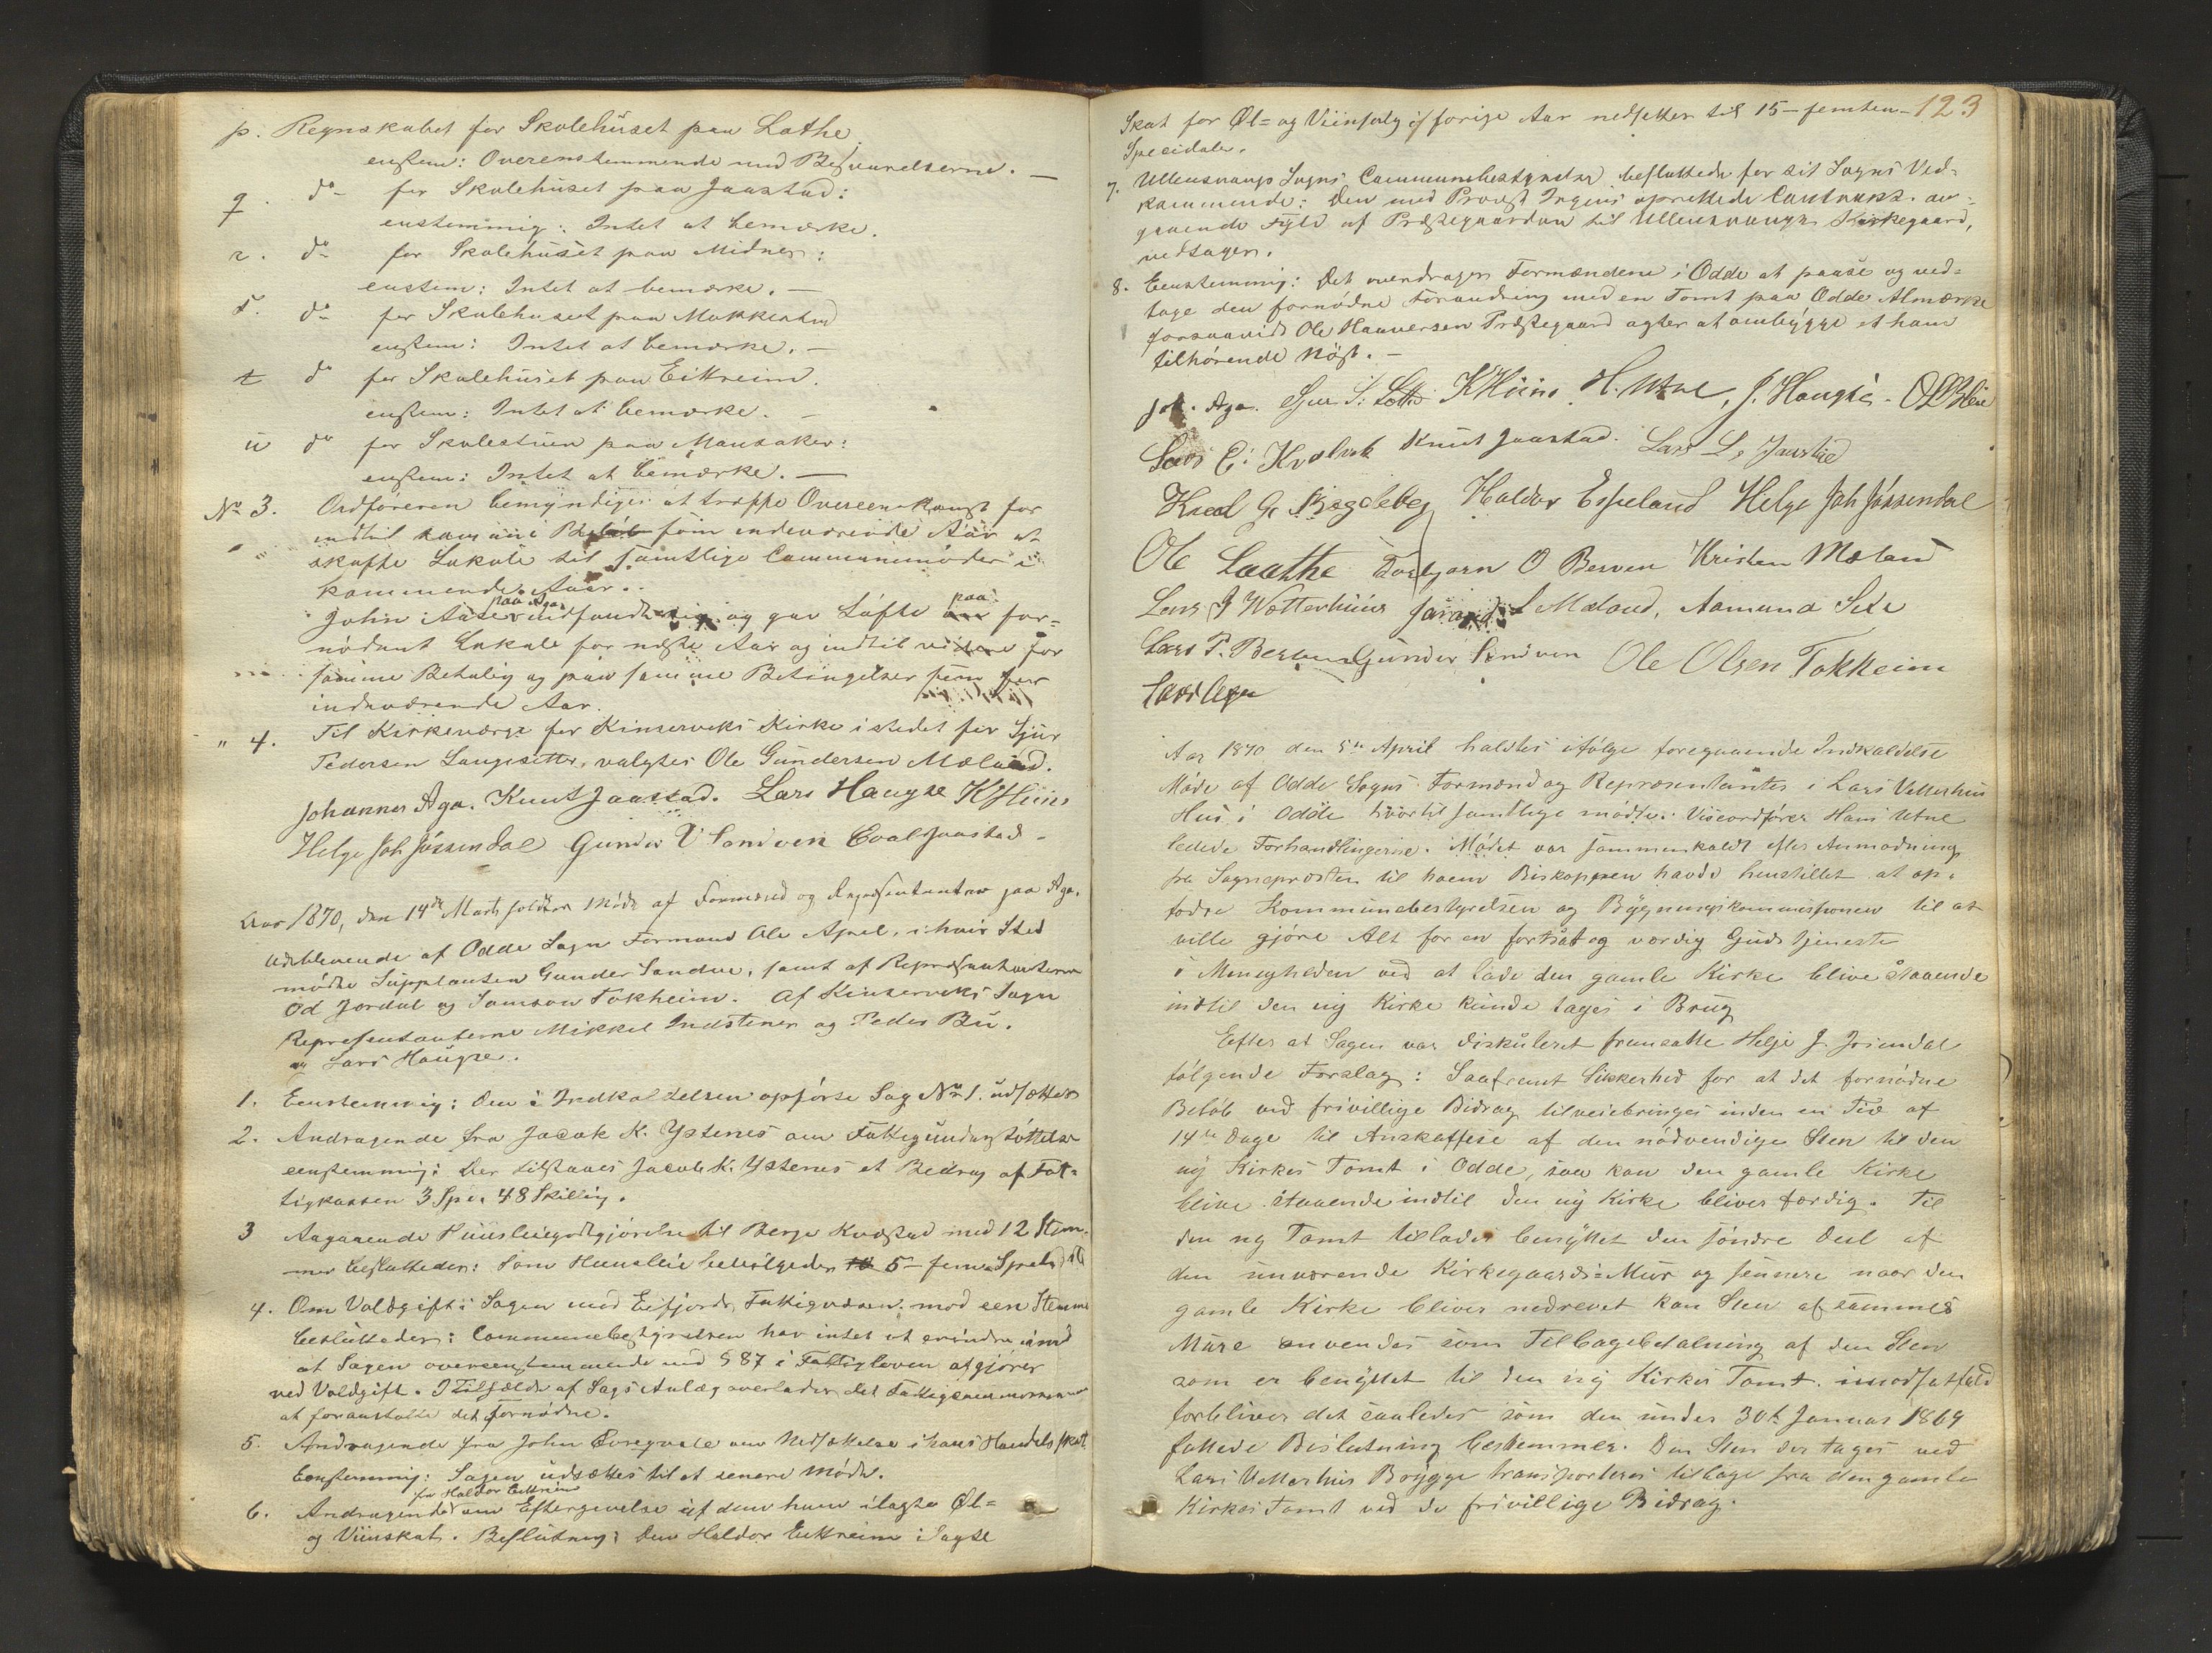 p. Regnskabet for Skolehuset paa Lothe
enstem: Overensstemmende med Besvarelserne. —
q. do for Skolehuset paa Jaastad:
enstemmig: Intet at bemærke.
r. do for Skolehuset paa Midnes:
enstem: Intet at bemærke. —
s. do for Skolehuset paa Mokkestad
enstem: Intet at bemærke. —
t do for Skolehuset paa Eitreim.
enstem: Intet at bemærke. —
u do for Skolestuen paa Mansaker:
enstem: Intet at bemærke. —
No 3. Ordføreren bemyndiges at træffe Overeenskomst for
indtil samme som indeværende Aar at
skaffe Lokale til samtlige Communemøder i
kommende Aar.
John Aase paa Aga indfandt sig og gav Løfte paa for-
nødent Lokale for næste Aar og indtil videre for
samme Betaling og paa samme Betingelser som for
indeværende Aar.
" 4. Til Kirkeværge for Kinserviks Kirke istedet for Sjur
Pedersen Langesetter, valgtes Ole Gundersen Mæland.
Johannes Aga. Knut Jaastad. Lars Haugse KHuus
Helge Joh Jøssendal Gunder Sandven Evald Jaastad -
Aar 1870, den 14de Marts holdtes Møde af Formænd og Repræsentanter paa Aga.
Udeblevende af Odde Sogn Formand Ole Apel, i hvis Sted
mødte Supplanten Gunder Sandve, samt af Repræsentanterne
Od Jordal og Samson Tokheim. Af Kinserviks Sogn
Repræsentanterne Mikkel Indstenes og Peder Bu.
og Lars Haugse.
1. Eenstemmig: Den i Indkaldelsen opførte Sag No 1. udsættes
2. Andragende fra Jacob K. Ystenes om Fattigunderstøttelse
eenstemmig: Der tilstaaes Jacob K. Ystenes et Bidrag af Fat-
tigkassen 3 Spd. 48 Skilling.
3 Angaaende Huusleiegodtgjørelse til Berge Kvestad med 12 Stem-
mer besluttedes: Som Huusleie bevilgedes 5 - fem Specid
4. Om Voldgift i Sagen med Eifjords Fattigvæsen. mod een Stemme
besluttedes: Communebestyrelsen har intet at erindre imod
at Sagen overeenstemmende med § 87 i Fattigloven afgjøres
ved Voldgift. I Tilfælde af Sags Anlæg overlades det Fattigcommissionen
at foranstalte det fornødne.
5. Andragende fra John om Nedsættelse i hans Handelsskat
Eenstemmig: Sagen udsættes til et senere Møde.
6. Andragende fra Haldor Eitreim om Eftergivelse af den ham ilagte Øl-
og Viinskat. Beslutning: Den Haldor Eitreim ilagte
123
Skat for Øl- og Viinsalg i forige Aar nedsættes til 15 - femten -
Specidaler.
7. Ullensvangs Sogns Communebestyrelse besluttede for sit Sogns Ved-
kommende: Den med Provst Irgens oprettede Contrakt an-
gaaende Fyld af Præstegaarden til Ullensvangs Kirkegaard,
vedtages.
8. Eenstemmig: Det overdrages Formændene i Odde at paase og ved-
tage den fornødne Forandring med en Tomt paa Odde Almærke
forsaavidt Ole Haaversen Præstegaard agter at ombygge et ham
tilhørende Nøst. —
Joh. Aga. Sjur S. Lothe KHuus H. Utne, J. Haugse - O
Lars E. Kvalvik Knut Jaastad. Lars L. Jaastad
Knud G. Haldor Espeland Helge Joh Jøssendal
Ole Laathe Torbjørn O Berven Kristen Mæland
Lars J Wetterhuus Mæland, Aamund Sexe
Lars P. Berven Gunder Sandven Ole Olsen Tokheim
Lars Aga
Aar 1870 den 5te April holdtes ifølge foregaaende Indkaldelse
Møde af Odde Sogns Formænd og Repræsentanter i Lars Vetterhus
Hus i Odde hvortil samtlige mødte. Viseordfører Hans Utne
ledede Forhandlingerne. Mødet var sammenkaldt efter Anmodning
fra Sognepræsten til hvem Biskoppen havde henstillet at op-
fodre Kommunebestyrelsen og Bygningskommissionen til at
ville gjøre Alt for en fortsat og værdig Gudstjeneste
i Menigheden ved at lade den gamle Kirke blive staaende
indtil den ny Kirke kunde tages i Brug
Efter at Sagen var diskuteret fremsatte Helje J. Jøsendal
følgende Forslag: Saafremt Sikkerhed for at det fornødne
Beløb ved frivillige Bidrag tilveiebringes inden en Tid af
14te Dage til Anskaffelse af den nødvendige Sten til den
ny Kirkes Tomt i Odde, saa kan den gamle Kirke
blive staaende indtil den ny Kirke bliver færdig. Til
den ny Tomt tillades benyttet den søndre Deel af
den nuværende Kirkegaards-Mur og senere naar den
gamle Kirke bliver nedrevet kan Sten af sammes
Mure anvendes som Tilbagebetalning af den Sten
som er benyttet til den ny Kirkes Tomt. imodsatfald
forbliver det saaledes som den under 30te Januar 1869
fattede Beslutning bestemmer. Den Sten der tages ved
Lars Vetterhus Brygge transporteres tilbage fra den gamle
Kirkes Tomt ved de frivillige Bidrag.